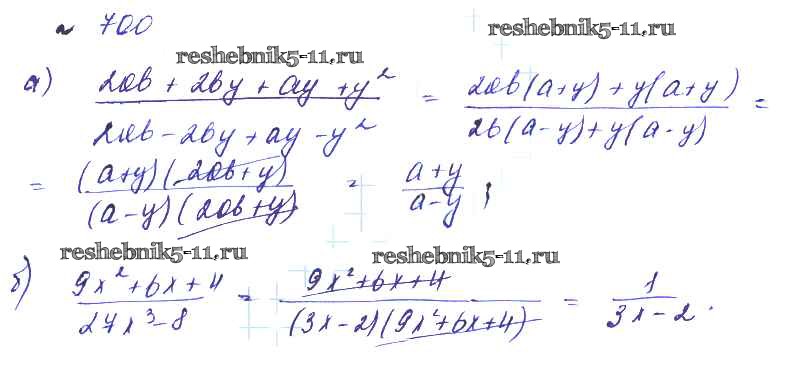 ~ 700
reshebnik5-11.ru
reshebnik5-11.ru
а) (2ab + 2by + ay + y²) / (2ab − 2by + ay − y²) = (2ab(a+y) + y(a+y)) / (2b(a−y) + y(a−y)) =
= ((a+y)(2ab+y)) / ((a−y)(2ab+y)) = (a+y) / (a−y) ;
reshebnik5-11.ru
reshebnik5-11.ru
б) (9x² + 6x + 4) / (27x³ − 8) = (9x² + 6x + 4) / ((3x−2)(9x²+6x+4)) = 1 / (3x − 2) .